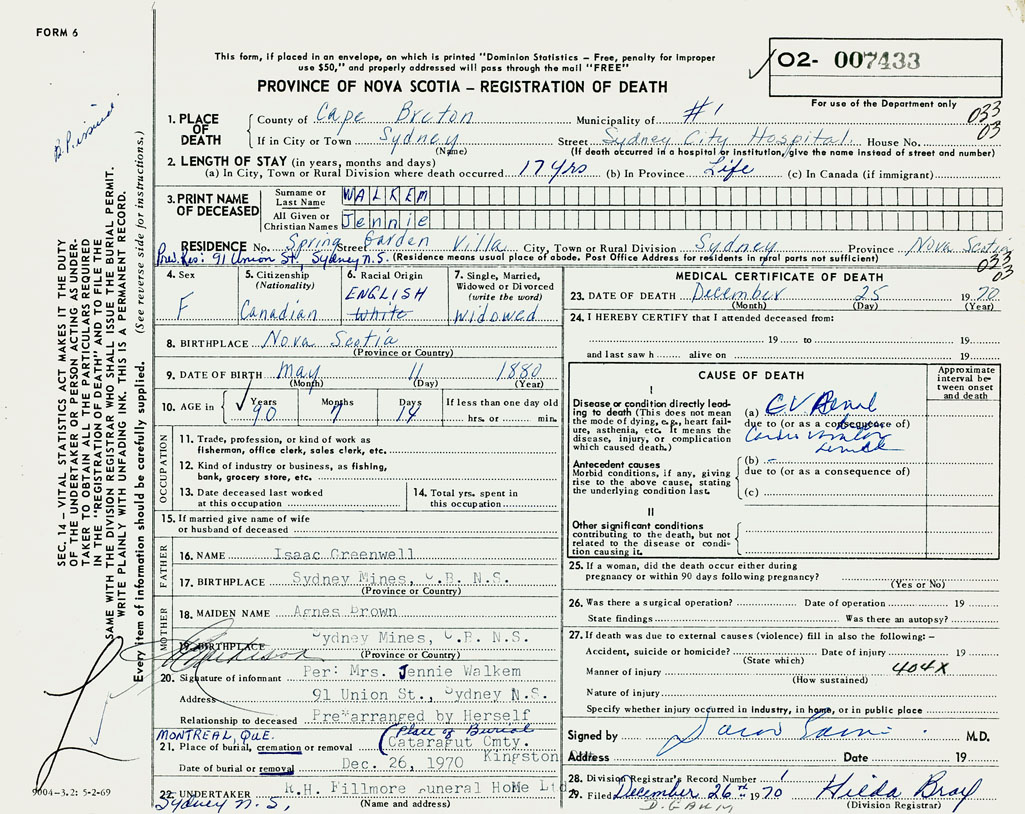 FORM 6
This form, if placed in an envelope, on which is printed "Dominion Statistics – Free, penalty for improper
use $50," and properly addressed will pass through the mail "FREE"
O2- 007433
For use of the Department only
PROVINCE OF NOVA SCOTIA – REGISTRATION OF DEATH
033
03
1. PLACE OF DEATH
County of Cape Breton Municipality of #1
If in City or Town Sydney Street Sydney City Hospital House No.
(Name) (If death occurred in a hospital or institution, give the name instead of street and number)
2. LENGTH OF STAY (in years, months and days)
(a) In City, Town or Rural Division where death occurred 17 yrs (b) In Province Life (c) In Canada (if immigrant)
3. PRINT NAME OF DECEASED
Surname or Last Name WALKEM
All Given or Christian Names Jennie
RESIDENCE No. Spring Street Garden Villa City, Town or Rural Division Sydney Province Nova Scotia
Prev. Res: 91 Union St. Sydney N.S. (Residence means usual place of abode. Post Office Address for residents in rural parts not sufficient)
033
03
4. Sex F
5. Citizenship (Nationality) Canadian
6. Racial Origin ENGLISH White
7. Single, Married, Widowed or Divorced (write the word) Widowed
8. BIRTHPLACE Nova Scotia
(Province or Country)
9. DATE OF BIRTH May 11 1880
(Month) (Day) (Year)
10. AGE in Years 90 Months 7 Days 14 If less than one day old
hrs. or min.
OCCUPATION
11. Trade, profession, or kind of work as
fisherman, office clerk, sales clerk, etc.
12. Kind of industry or business, as fishing,
bank, grocery store, etc.
13. Date deceased last worked
at this occupation
14. Total yrs. spent in
this occupation
15. If married give name of wife
or husband of deceased
FATHER
16. NAME Isaac Greenwell
17. BIRTHPLACE Sydney Mines, C.B. N.S.
(Province or Country)
MOTHER
18. MAIDEN NAME Agnes Brown
19. BIRTHPLACE Sydney Mines, C.B. N.S.
(Province or Country)
20. Signature of informant Per: Mrs. Jennie Walkem
Address 91 Union St., Sydney N.S.
Relationship to deceased Pre*arranged by Herself
MONTREAL, QUE. (Place of Burial
21. Place of burial, cremation or removal Cataraqut Cmty.
Kingston
Date of burial or removal Dec. 26, 1970
22. UNDERTAKER R.H. Fillmore Funeral HoMe Ltd
Sydney N.S, (Name and address)
MEDICAL CERTIFICATE OF DEATH
23. DATE OF DEATH December 25 1970
(Month) (Day) (Year)
24. I HEREBY CERTIFY that I attended deceased from:
19 to 19
and last saw h alive on 19
CAUSE OF DEATH
Approximate interval between onset and death
I
Disease or condition directly leading to death (This does not mean the mode of dying, e.g., heart failure, asthenia, etc. It means the disease, injury, or complication which caused death.)
(a) C V Renal
due to (or as a consequence of)
Antecedent causes
Morbid conditions, if any, giving rise to the above cause, stating the underlying condition last.
(b)
due to (or as a consequence of)
(c)
II
Other significant conditions
contributing to the death, but not related to the disease or condition causing it.
25. If a woman, did the death occur either during
pregnancy or within 90 days following pregnancy?
(Yes or No)
26. Was there a surgical operation? Date of operation 19
State findings Was there an autopsy?
27. If death was due to external causes (violence) fill in also the following:–
Accident, suicide or homicide? Date of injury 19
(State which)
Manner of injury 404X
(How sustained)
Nature of injury
Specify whether injury occurred in industry, in home, or in public place
Signed by M.D.
Address Date 19
28. Division Registrar's Record Number 1
29. Filed December 26th 1970 Hilda Bray
(Division Registrar)
SEC. 14 – VITAL STATISTICS ACT MAKES IT THE DUTY
OF THE UNDERTAKER OR PERSON ACTING AS UNDER-
TAKER TO OBTAIN ALL THE PARTICULARS REQUIRED
IN THE "REGISTRATION OF DEATH" AND TO FILE THE
SAME WITH THE DIVISION REGISTRAR WHO SHALL ISSUE THE BURIAL PERMIT.
WRITE PLAINLY WITH UNFADING INK. THIS IS A PERMANENT RECORD.
Every item of information should be carefully supplied. (See reverse side for instructions.)
B.P. issued
9004-3.2: 5-2-69